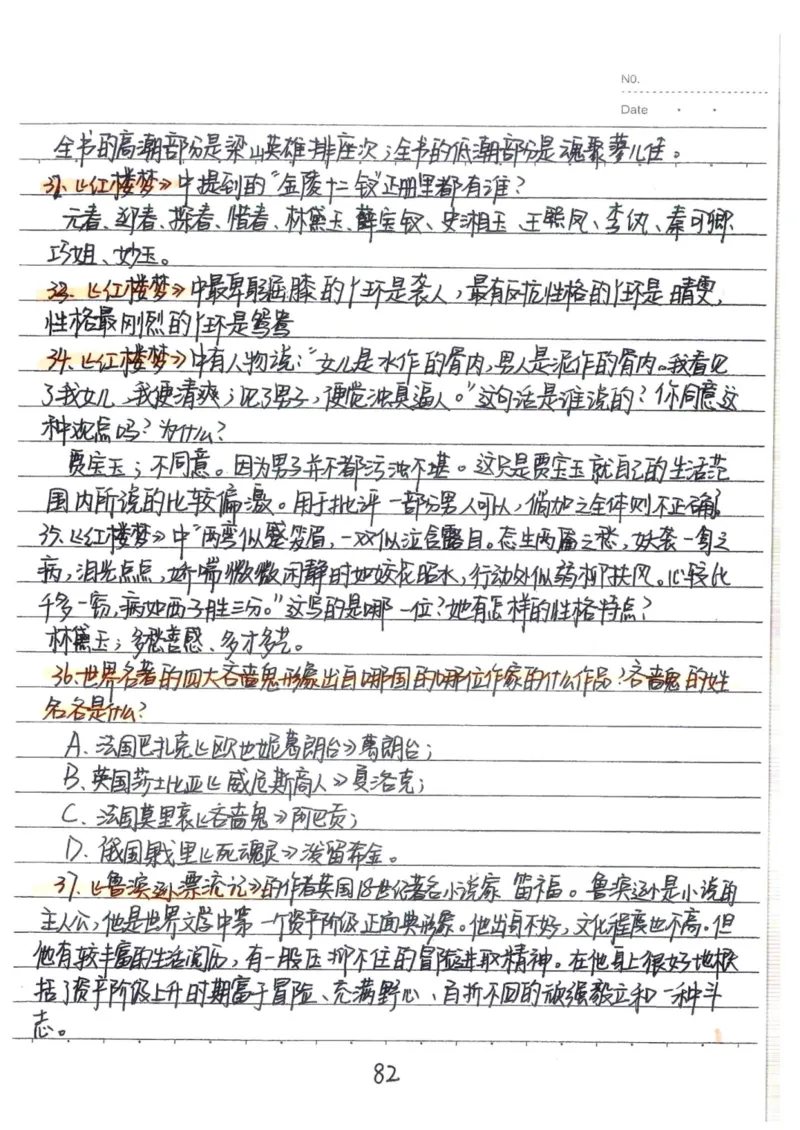 NO.
Date
全书的高潮部分是梁山英雄排座次；全书的低潮部分是魂聚蓼儿洼。
32.《红楼梦》中提到的“金陵十二钗”正册里都有谁？
元春、迎春、探春、惜春、林黛玉、薛宝钗、史湘玉、王熙凤、李纨、秦可卿
巧姐、妙玉。
33.《红楼梦》中最卑躬屈膝的丫环是袭人，最有反抗性格的丫环是晴雯，
性格最刚烈的丫环是鸳鸯
34.《红楼梦》中有人物说：“女儿是水作的骨肉，男人是泥作的骨肉。我看见
了我女儿，我便清爽；见了男子，便觉浊臭逼人。”这句话是谁说的？你同意这
种观点吗？为什么？
贾宝玉；不同意。因为男子并不都污浊不堪。这只是贾宝玉就自己的生活范
围内所说的比较偏激。用于批评一部分男人可以，倘加之全体则不正确。
35.《红楼梦》中“两弯似蹙笼眉，一双似泣含露目。态生两靥之愁，妖袭一身之
病，泪光点点，娇喘微微闲静时如姣花照水，行动处似弱柳扶风。心较比
干多一窍，病如西子胜三分。”这写的是哪一位？她有怎样的性格特点？
林黛玉；多愁善感、多才多艺。
36.世界名著的四大吝啬鬼形象出自哪国的哪位作家的什么作品？吝啬鬼的姓
名各是什么？
A.法国巴扎克《欧也妮葛朗台》葛朗台；
B.英国莎士比亚《威尼斯商人》夏洛克；
C.法国莫里哀《吝啬鬼》阿巴贡；
D.俄国果戈里《死魂灵》泼留希金。
37.《鲁滨逊漂流记》的作者英国18世纪著名小说家笛福。鲁滨逊是小说的
主人公，他是世界文学中第一个资产阶级正面典形象。他出身不好，文化程度也不高。但
他有较丰富的生活阅历，有一股压抑不住的冒险进取精神。在他身上很好地概
括了资产阶级上升时期富于冒险、充满野心、百折不回的顽强毅立和一种斗
志。
82